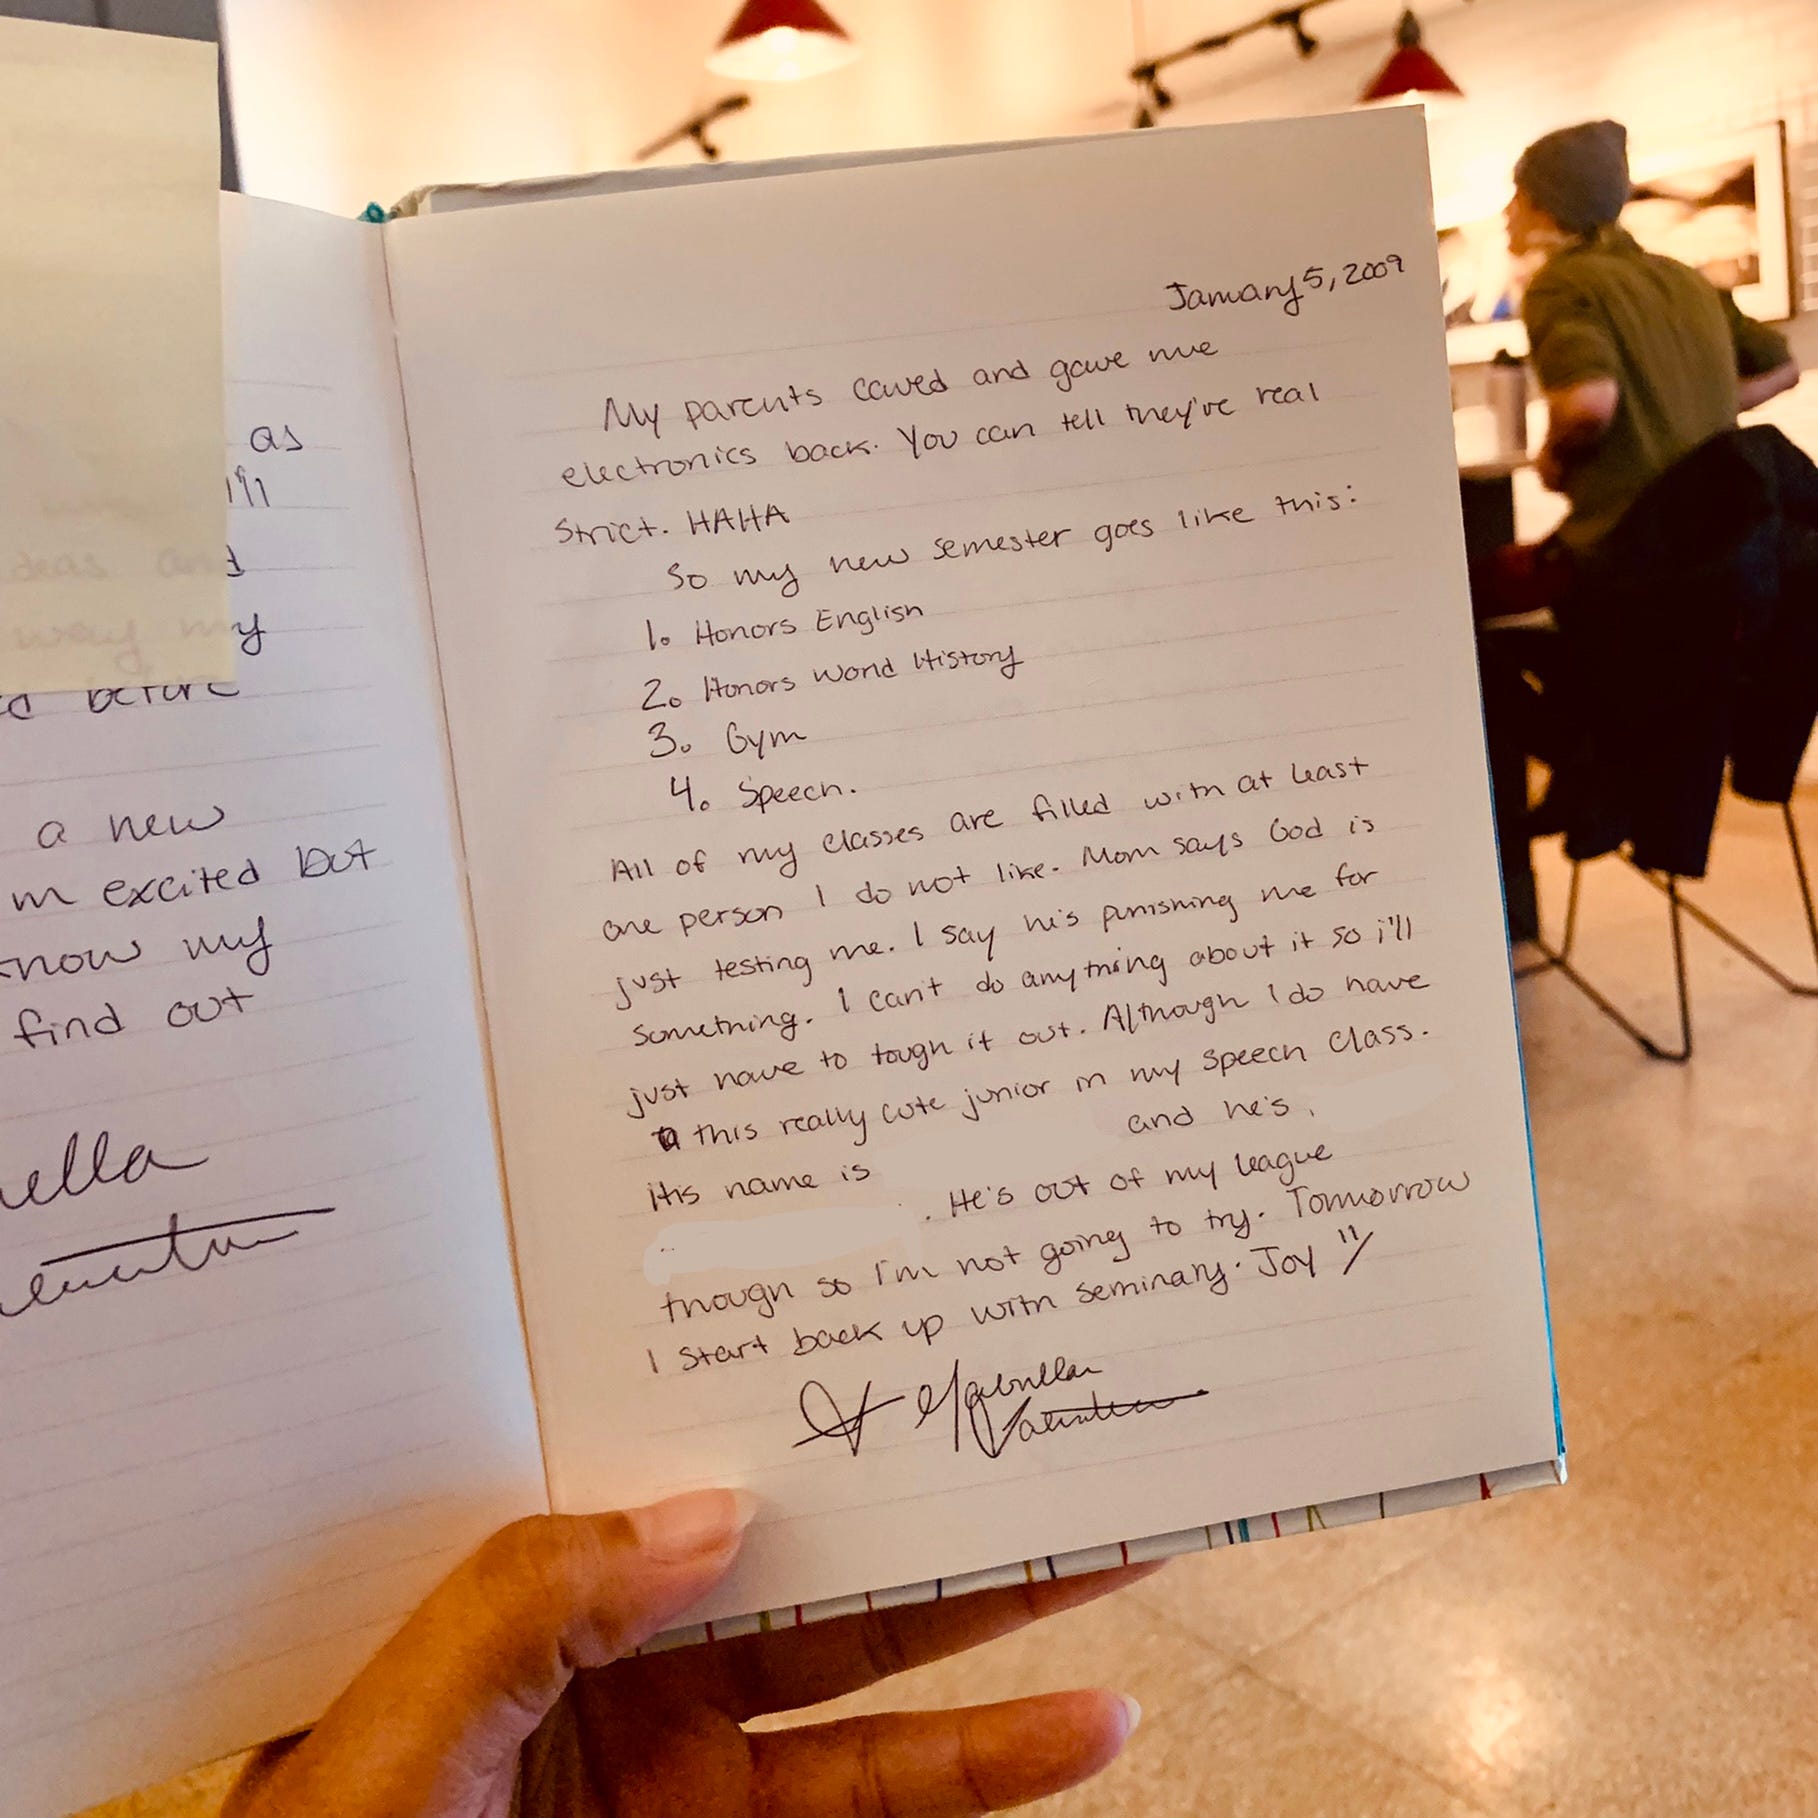 as
i'll
deas and
way my
before
a new
m excited but
know my
find out
January 5, 2009
My parents caved and gave me
electronics back. You can tell they're real
strict. HAHA
So my new semester goes like this:
1. Honors English
2. Honors World History
3. Gym
4. Speech.
All of my classes are filled with at least
one person I do not like. Mom says God is
just testing me. I say he's punishing me for
something. I can't do anything about it so i'll
just have to tough it out. Although I do have
this really cute junior in my speech class.
His name is and he's
. He's out of my league
though so I'm not going to try. Tomorrow
I start back up with seminary. Joy
Gabriella
Valentin